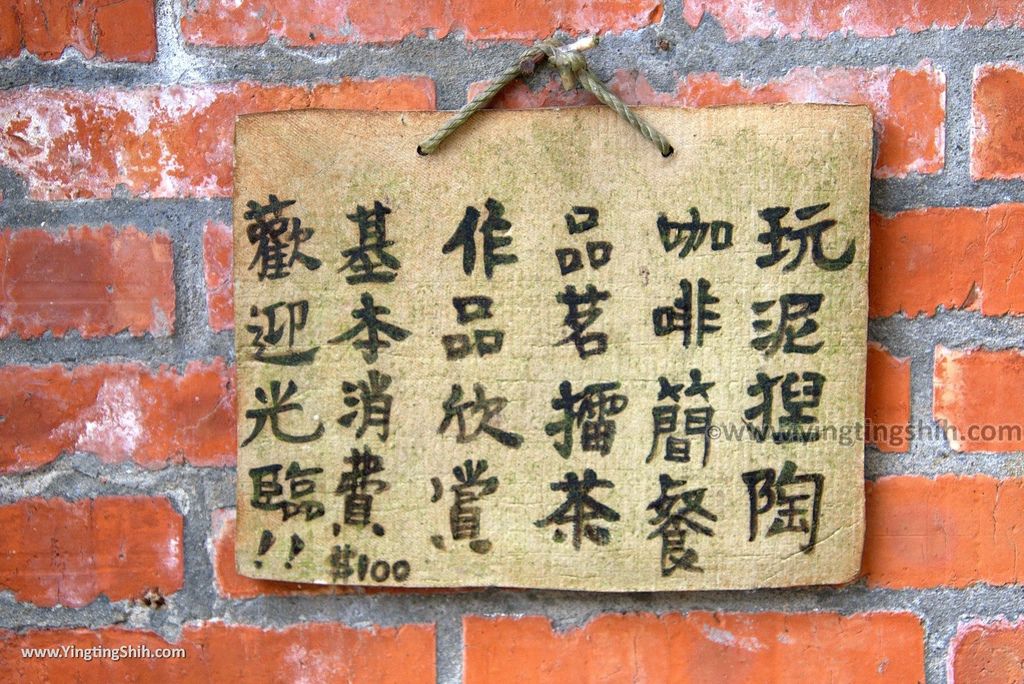 玩泥猩陶
咖啡簡餐
品茗擂茶
作品欣賞
基本消費$100
歡迎光臨!!
©www.YingtingShih.com
www.YingtingShih.com